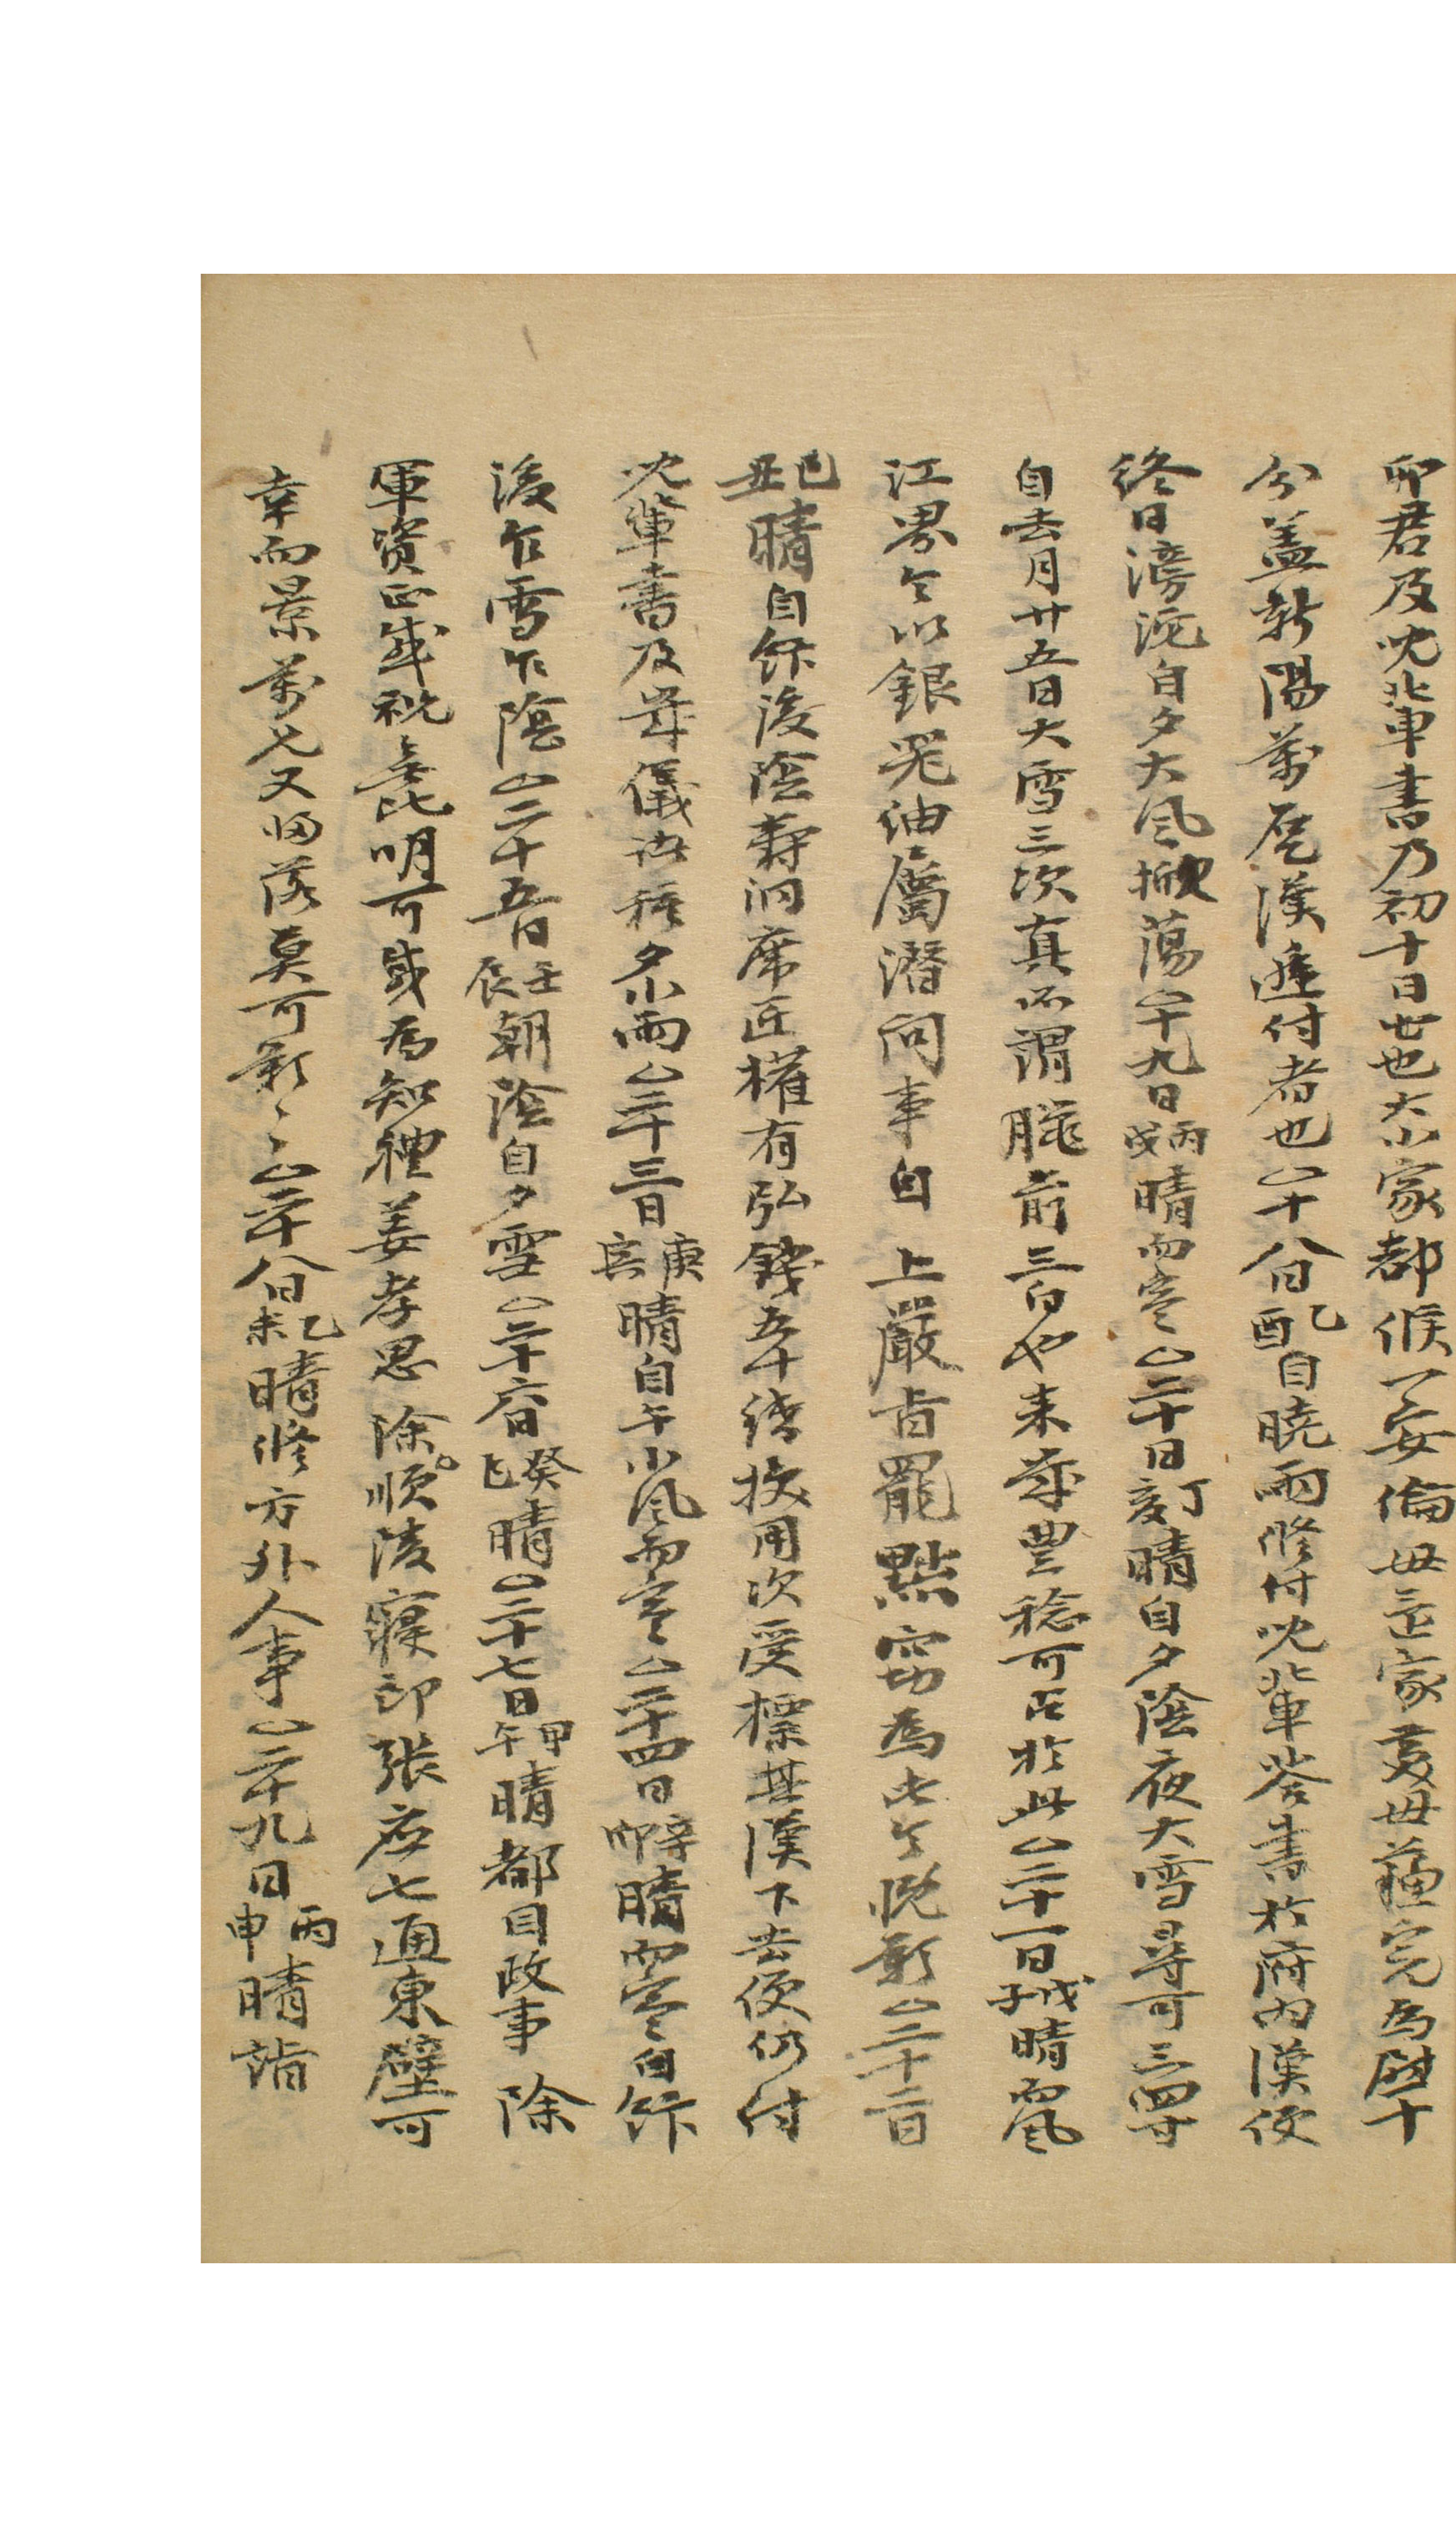 卯君及兒輩書乃初十日出也大小家都候一安倫母言家夏母蘓完為慰十
分盖新陽万尼漢遞付者也○十八日乙酉自曉雨修付兒輩答書於府內漢便
終日滂沱自夕大風掀蕩○十九日丙戌晴而寒○二十日丁亥晴自夕陰夜大雪尋可三四寸
自去月廿五日大雪三次真所謂臘前三白也来歲豊稔可占於此○二十一日戊子晴風
江界令以銀器紬屬潜問事自 上嚴旨罷黜窃為此令慨歎○二十二日
己丑晴自午後陰壽洞席匠權有弘錢五十緡推用次受標基漢下去便仍付
兒輩書及歲儀諸種夕小雨○二十三日庚寅晴自午小風而寒○二十四日辛卯晴而寒自午
後乍雪乍陰○二十五日壬辰朝陰自夕雪○二十六日癸巳晴○二十七日甲午晴都目政事 除
軍資正成祝龜明可或為知禮姜孝思 除順陵寢郎張應七通東壁可
幸而景万兄又歸落莫可歎々○二十八日乙未晴修方外人事○二十九日丙申晴詣